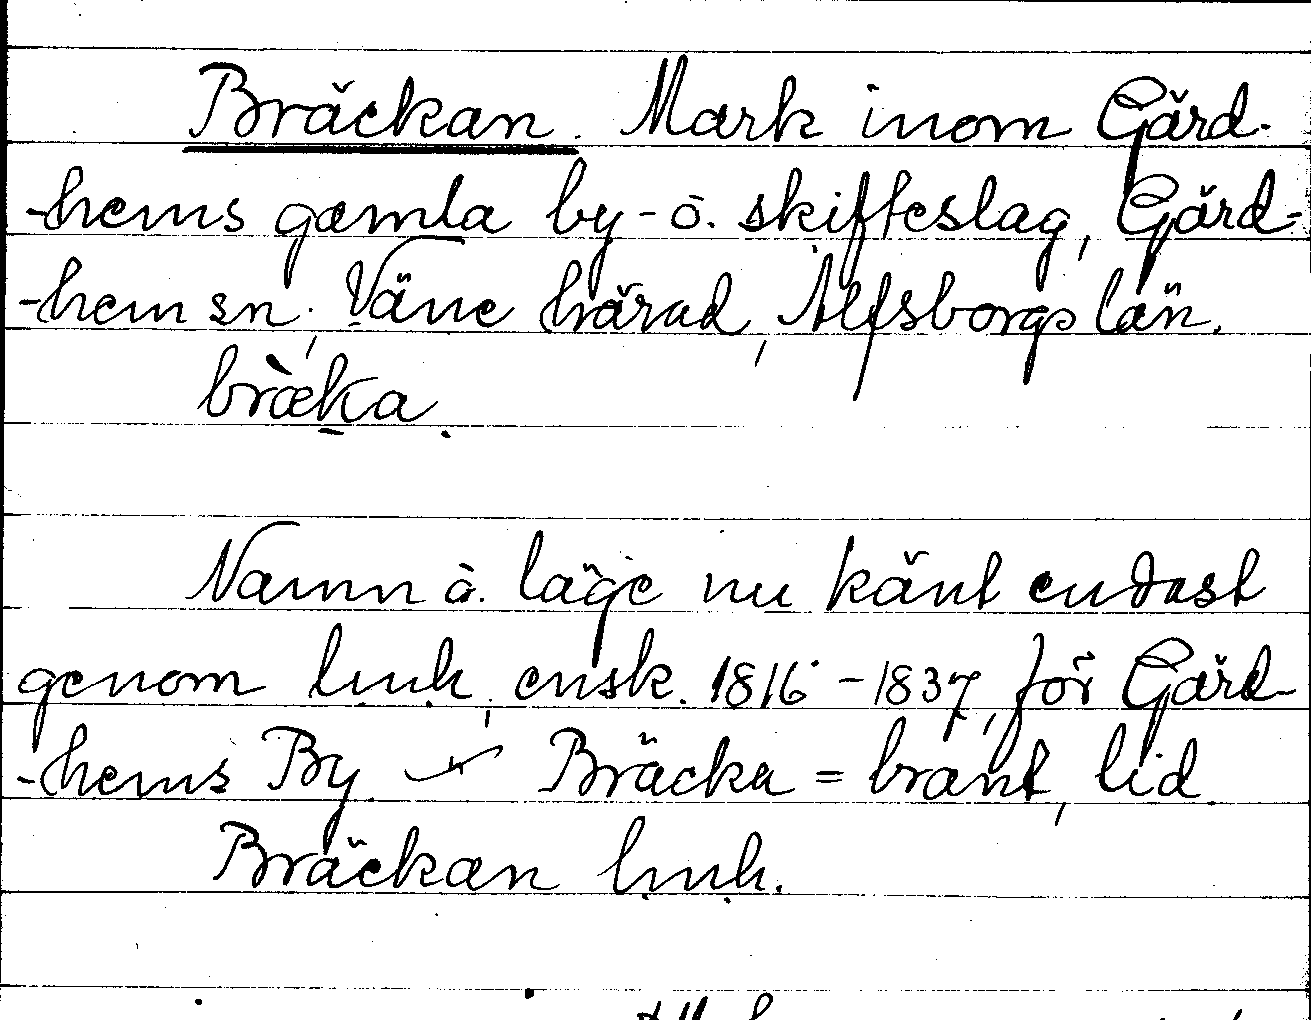 Bräckan. Mark inom Gärd-
-hems gamla by- o. skifteslag, Gärd-
-hem sn, Väne härad, Älfsborgs län.
bræ̀ka.
Namn o. läge nu känt endast
genom lmh, ensk. 1816-1837, för Gärd-
-hems By Bräcka = brant, lid.
Bräckan lmh.